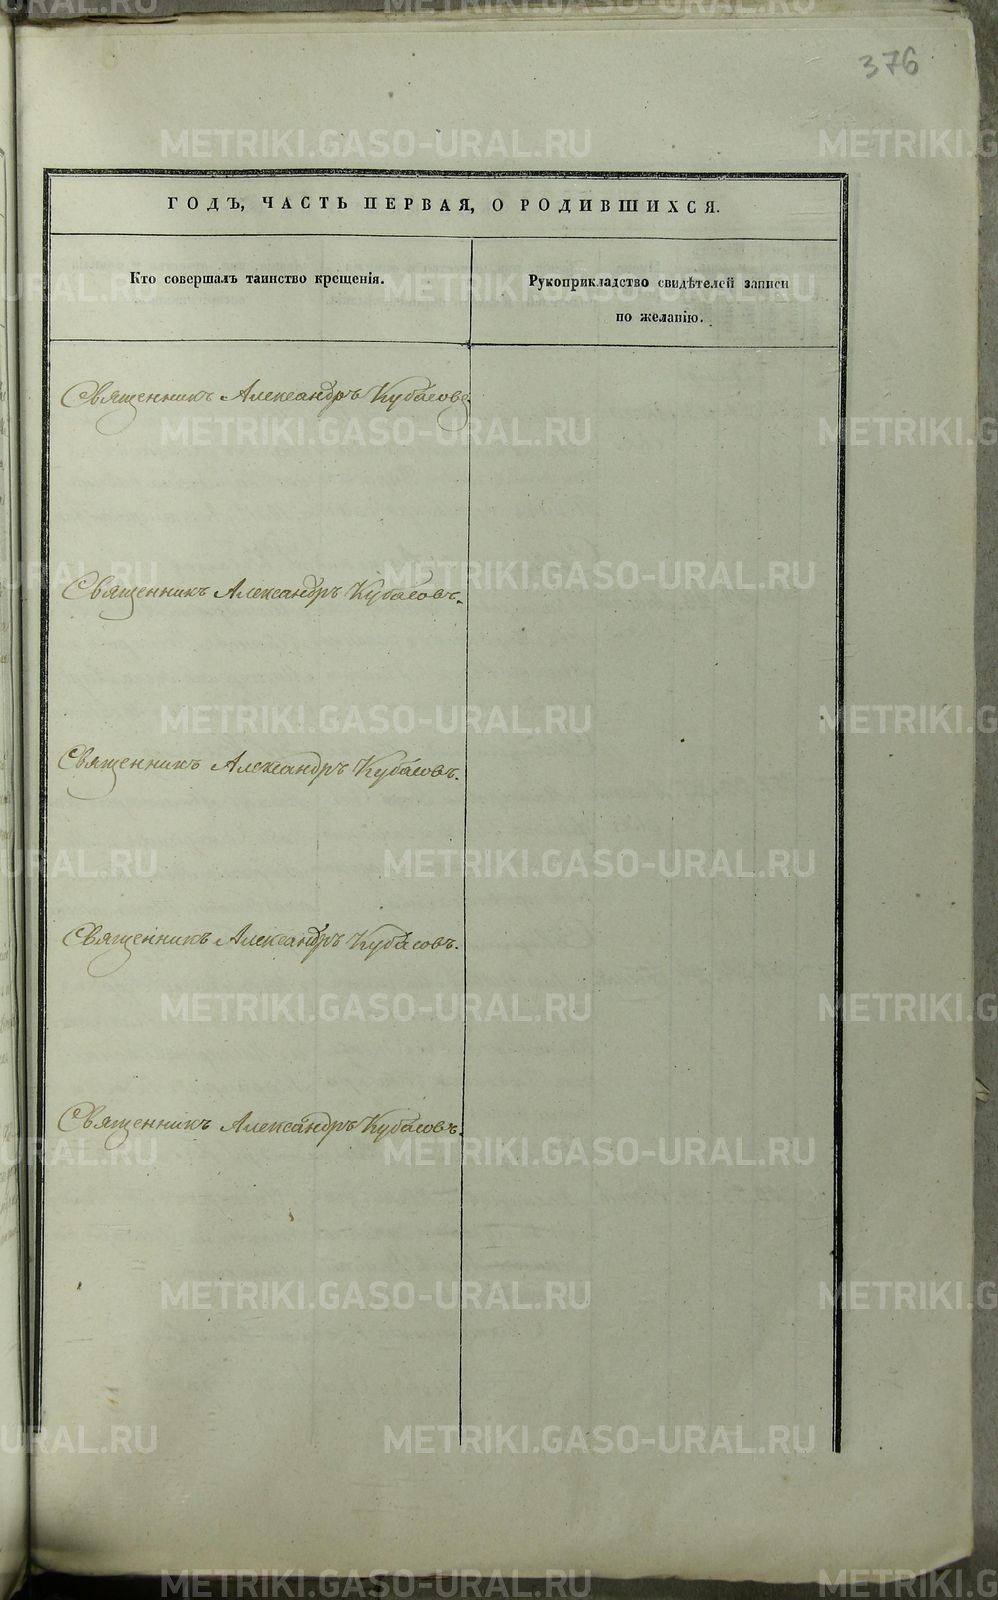 376
ГОДЪ, ЧАСТЬ ПЕРВАЯ, О РОДИВШИХСЯ.
Кто совершалъ таинство крещенія.
Рукоприкладство свидѣтелей записи
по желанію.
Священникъ Александръ Кубасовъ
Священникъ Александръ Кубасовъ.
Священникъ Александръ Кубасовъ.
Священникъ Александръ Кубасовъ.
Священникъ Александръ Кубасовъ.
METRIKI.GASO-URAL.RU